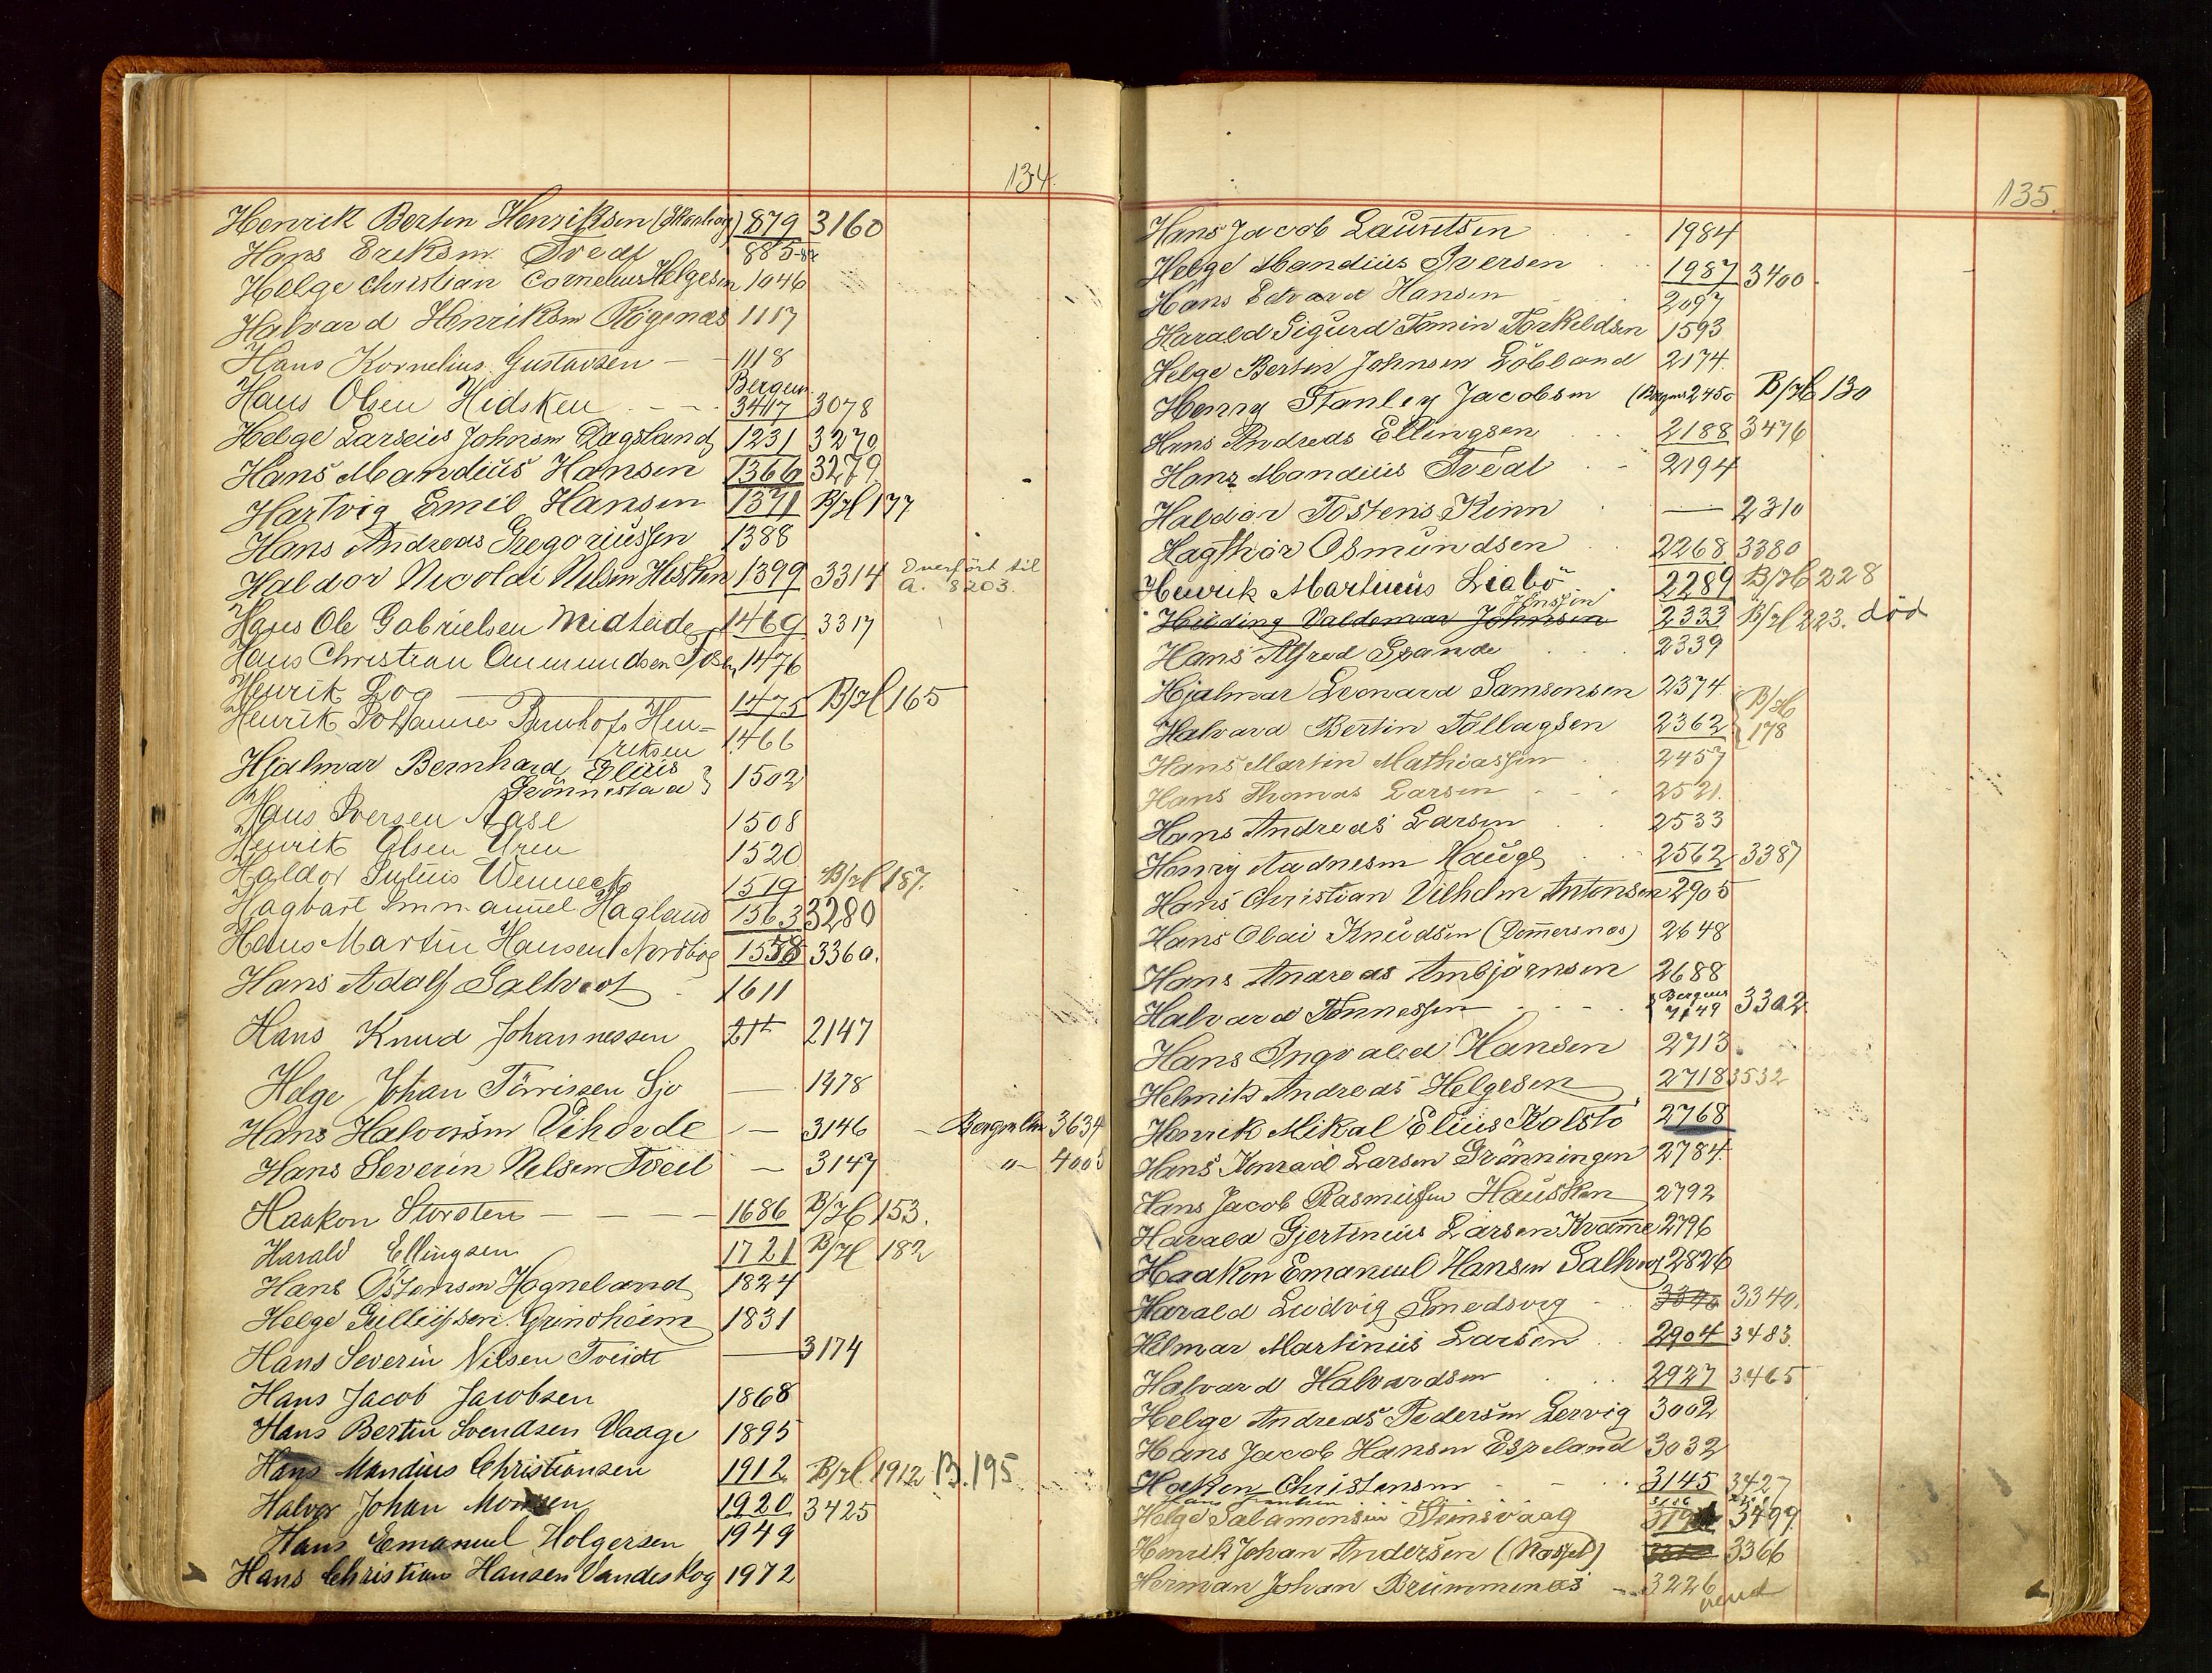 134.
Henrik Bertin Henriksen 879 3160
Hans Eriksen Tvedt 885
Helge Christian Cornelius Helgesen 1046
Halvard Henriksen Rögenæs 1117
Hans Kornelius Gustavsen - - 1118
Bergens
Hans Olsen Hidsken - - 3417 3078
Helge Larseus Johnsen Dagsland 1231 3270
Hans Mandius Hansen 1366 3279
Hartvig Emil Hansen 1371 B/H 177
Hans Andreas Gregoriussen 1388
Haldor Nicolai Nilsen Hisken 1399 3314 Overført til a. 8203.
Hans Ole Gabrielsen Midteide 1469 3317
Hans Christian Aumundsen 1476
Henrik Log 1475 B/H 165
Henrik Johannes Hen-
riksen 1466
Hjalmar Bernhard Elius
Grönnestad } 1502
Hans Iversen Aase 1508
Henrik Olsen Uren 1520
Haldor Julius Wennech 1519 B/H 187.
Hagbart Immanuel Hagland 1563 3280
Hans Martin Hansen Nordbög 1558 3360.
Hans Adolf Salhvot 1611
Hans Knud Johannessen 21+ 2147
Helge Johan Törrissen Sjo — 1478
Hans Halvorsen Vihovde — 3146 - Bergens 3634
Hans Severin Nilsen Tveit — 3147 -"- 4005
Haakon Storsten — — — 1686 B/H 153.
Harald Ellingsen 1721 B/H 182
Hans Östensen Hogneland 1824
Helge Gullichsen Grindheim 1831
Hans Severin Nilsen Tveidt — 3174
Hans Jacob Jacobsen 1868
Hans Bertin Svendsen Vaage 1895
Hans Mandius Christiansen 1912 B/H 1912 B. 195
Halvor Johan Monsen 1920 3425
Hans Emanuel Holgersen 1949
Hans Christian Hansen Vandeskog 1972
135.
Hans Jacob Lauritsen 1984
Helge Mandius Iversen 1987 3400
Hans Edvard Hansen 2097
Harald Sigurd Tomin Torkeldsen 1593
Helge Bertin Johnsen Löbland 2174.
Henry Stanley Jacobsen (Bergens 2450 B/H 130
Hans Andreas Ellingsen 2188 3476
Hans Mandius Tvedt 2194
Haldor Tostens Kinn — 2310
Hagthor Osmundsen 2268 3380
Henrik Martinus Liabö 2289 B/H 228
Jenssen
Hilding Valdemar Johnsen 2333 B/H 223. död
Hans Alfred Grande 2339
Hjalmar Leonard Samsonsen 2374
Halvard Bertin Tollagsen 2362 { B/H 178
Hans Martin Mathiassen 2457
Hans Thomas Larsen 2521.
Hans Andreas Larsen 2533
Henry Aadnesen Hauge 2562 3387
Hans Christian Vilhelm Antonsen 2905
Hans Olai Knudsen (Dommersnes) 2648
Hans Andreas Ambjörnsen 2688
Halvard Tönnessen { Bergens 7149 3302.
Hans Ingvald Hansen 2713
Helmik Andreas Helgesen 2718 3532
Henrik Mikal Elius Kolstö 2768
Hans Konrad Larsen Grönningen 2784
Hans Jacob Rasmussen Hausken 2792
Harald Gjertinius Larsen Kvamme 2796
Haakon Emanuel Hansen Salhus 2826
Harald Ludvig Smedsvig 3340.
Hilmar Martinius Larsen 2904 3483.
Halvard Halvardsen 2927 3465
Helge Andreas Pedersen Lervig 3002
Hans Jacob Hansen Espeland 3032
Haken Christensen 3145 3427
Helge Salamonsen Steinsvaag 3499
Henrik Johan Andersen 3366
Herman Johan Brummenæs 3226
vend